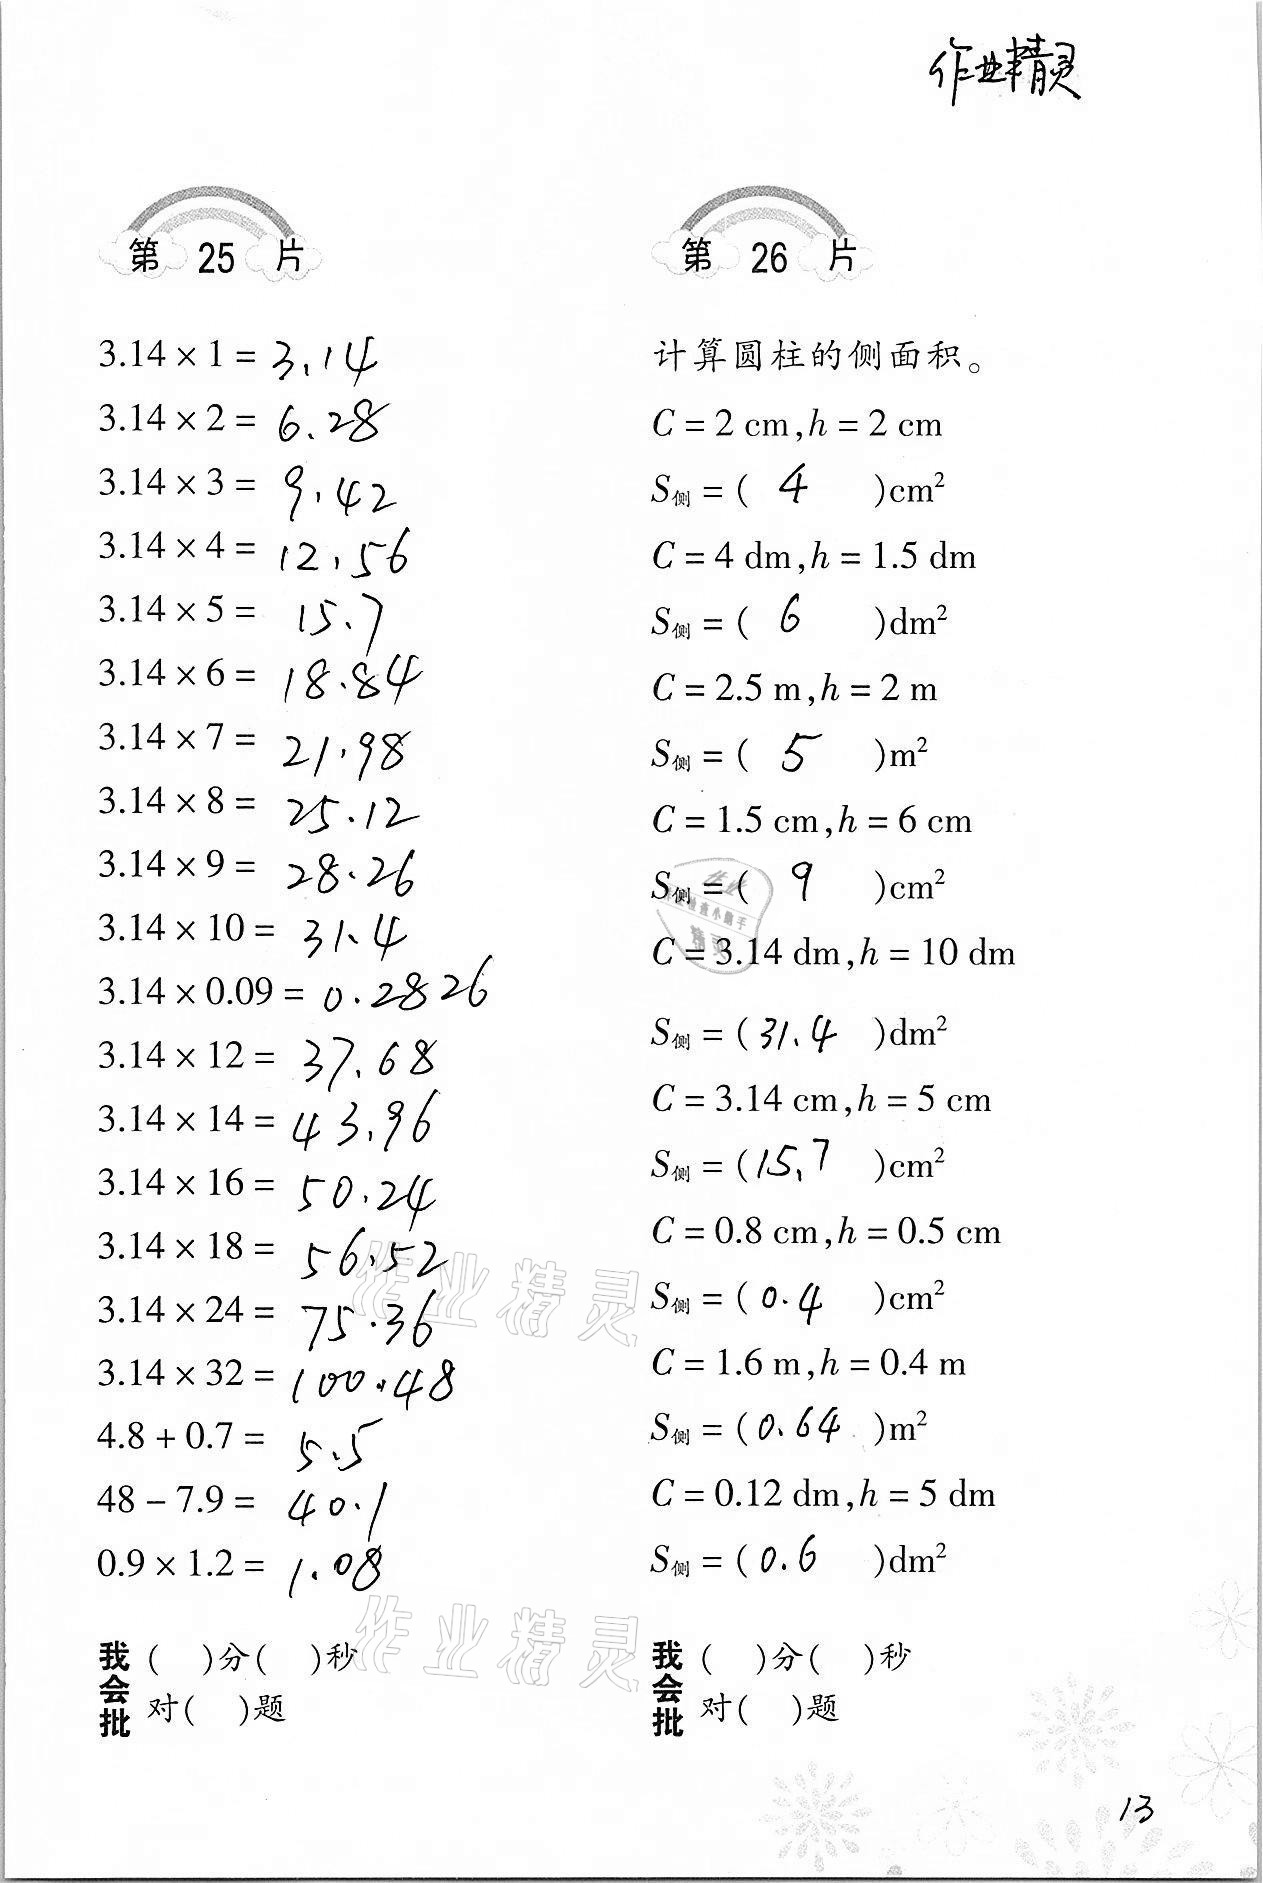 作业精灵
第 25 片
3.14 × 1 = 3.14
3.14 × 2 = 6.28
3.14 × 3 = 9.42
3.14 × 4 = 12.56
3.14 × 5 = 15.7
3.14 × 6 = 18.84
3.14 × 7 = 21.98
3.14 × 8 = 25.12
3.14 × 9 = 28.26
3.14 × 10 = 31.4
3.14 × 0.09 = 0.2826
3.14 × 12 = 37.68
3.14 × 14 = 43.96
3.14 × 16 = 50.24
3.14 × 18 = 56.52
3.14 × 24 = 75.36
3.14 × 32 = 100.48
4.8 + 0.7 = 5.5
48 − 7.9 = 40.1
0.9 × 1.2 = 1.08
我会批
( )分( )秒
对( )题
第 26 片
计算圆柱的侧面积。
C = 2 cm,h = 2 cm
S侧 = ( 4 )cm²
C = 4 dm,h = 1.5 dm
S侧 = ( 6 )dm²
C = 2.5 m,h = 2 m
S侧 = ( 5 )m²
C = 1.5 cm,h = 6 cm
S侧 = ( 9 )cm²
C = 3.14 dm,h = 10 dm
S侧 = ( 31.4 )dm²
C = 3.14 cm,h = 5 cm
S侧 = ( 15.7 )cm²
C = 0.8 cm,h = 0.5 cm
S侧 = ( 0.4 )cm²
C = 1.6 m,h = 0.4 m
S侧 = ( 0.64 )m²
C = 0.12 dm,h = 5 dm
S侧 = ( 0.6 )dm²
我会批
( )分( )秒
对( )题
作业精灵
作业精灵
作业
检查小助手
精灵
13